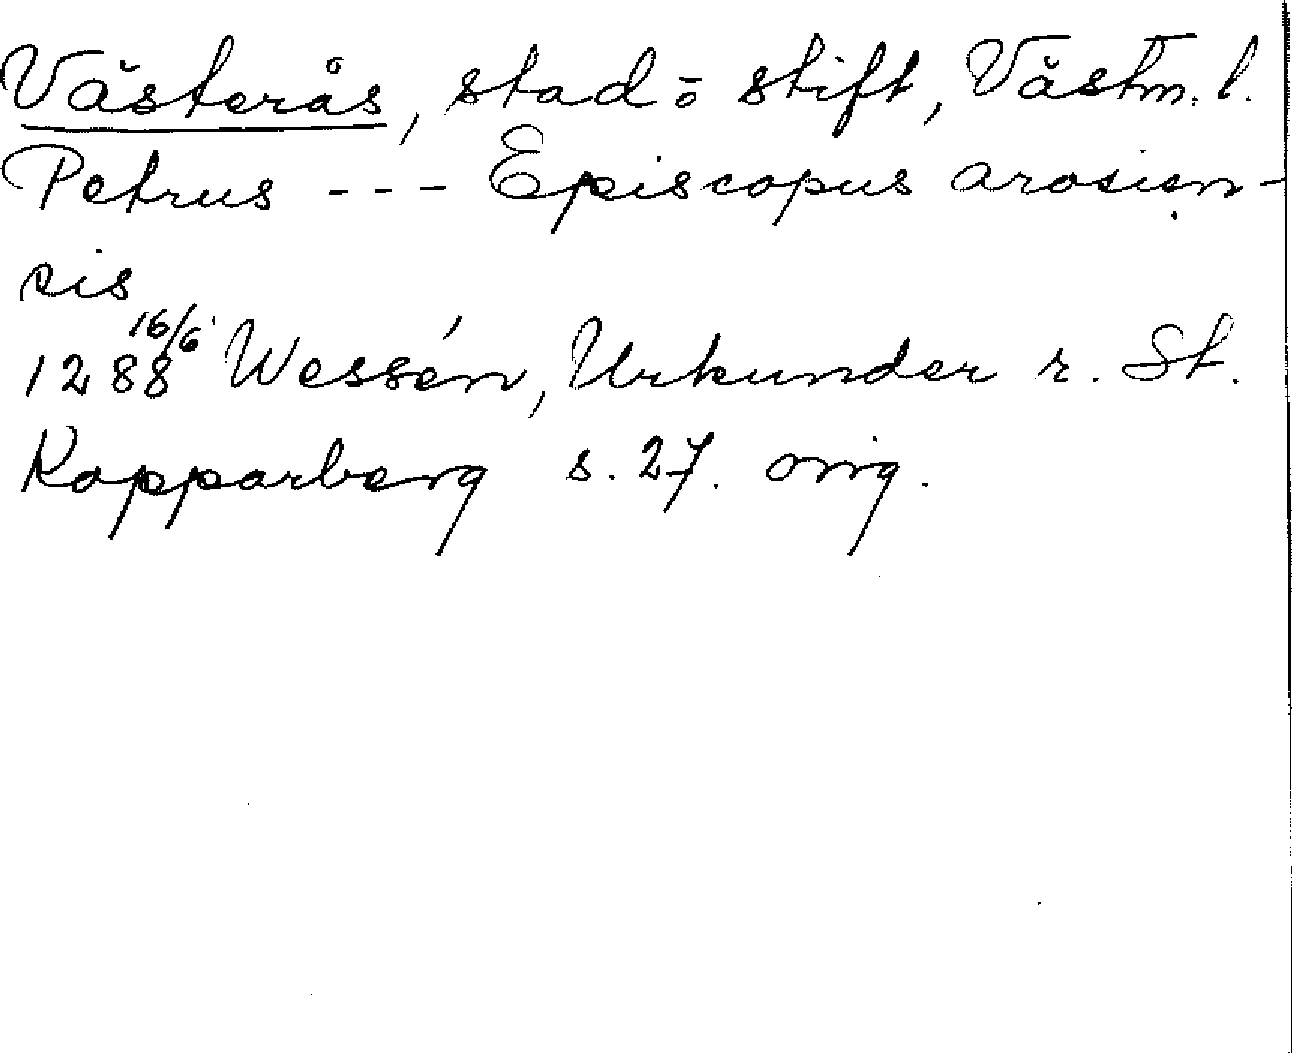 Västerås, stad o stift, Västm. l.
Petrus --- Episcopus arosien-
sis
1288 16/6 Wessén, Urkunder r. St.
Kopparberg s. 27. orig.